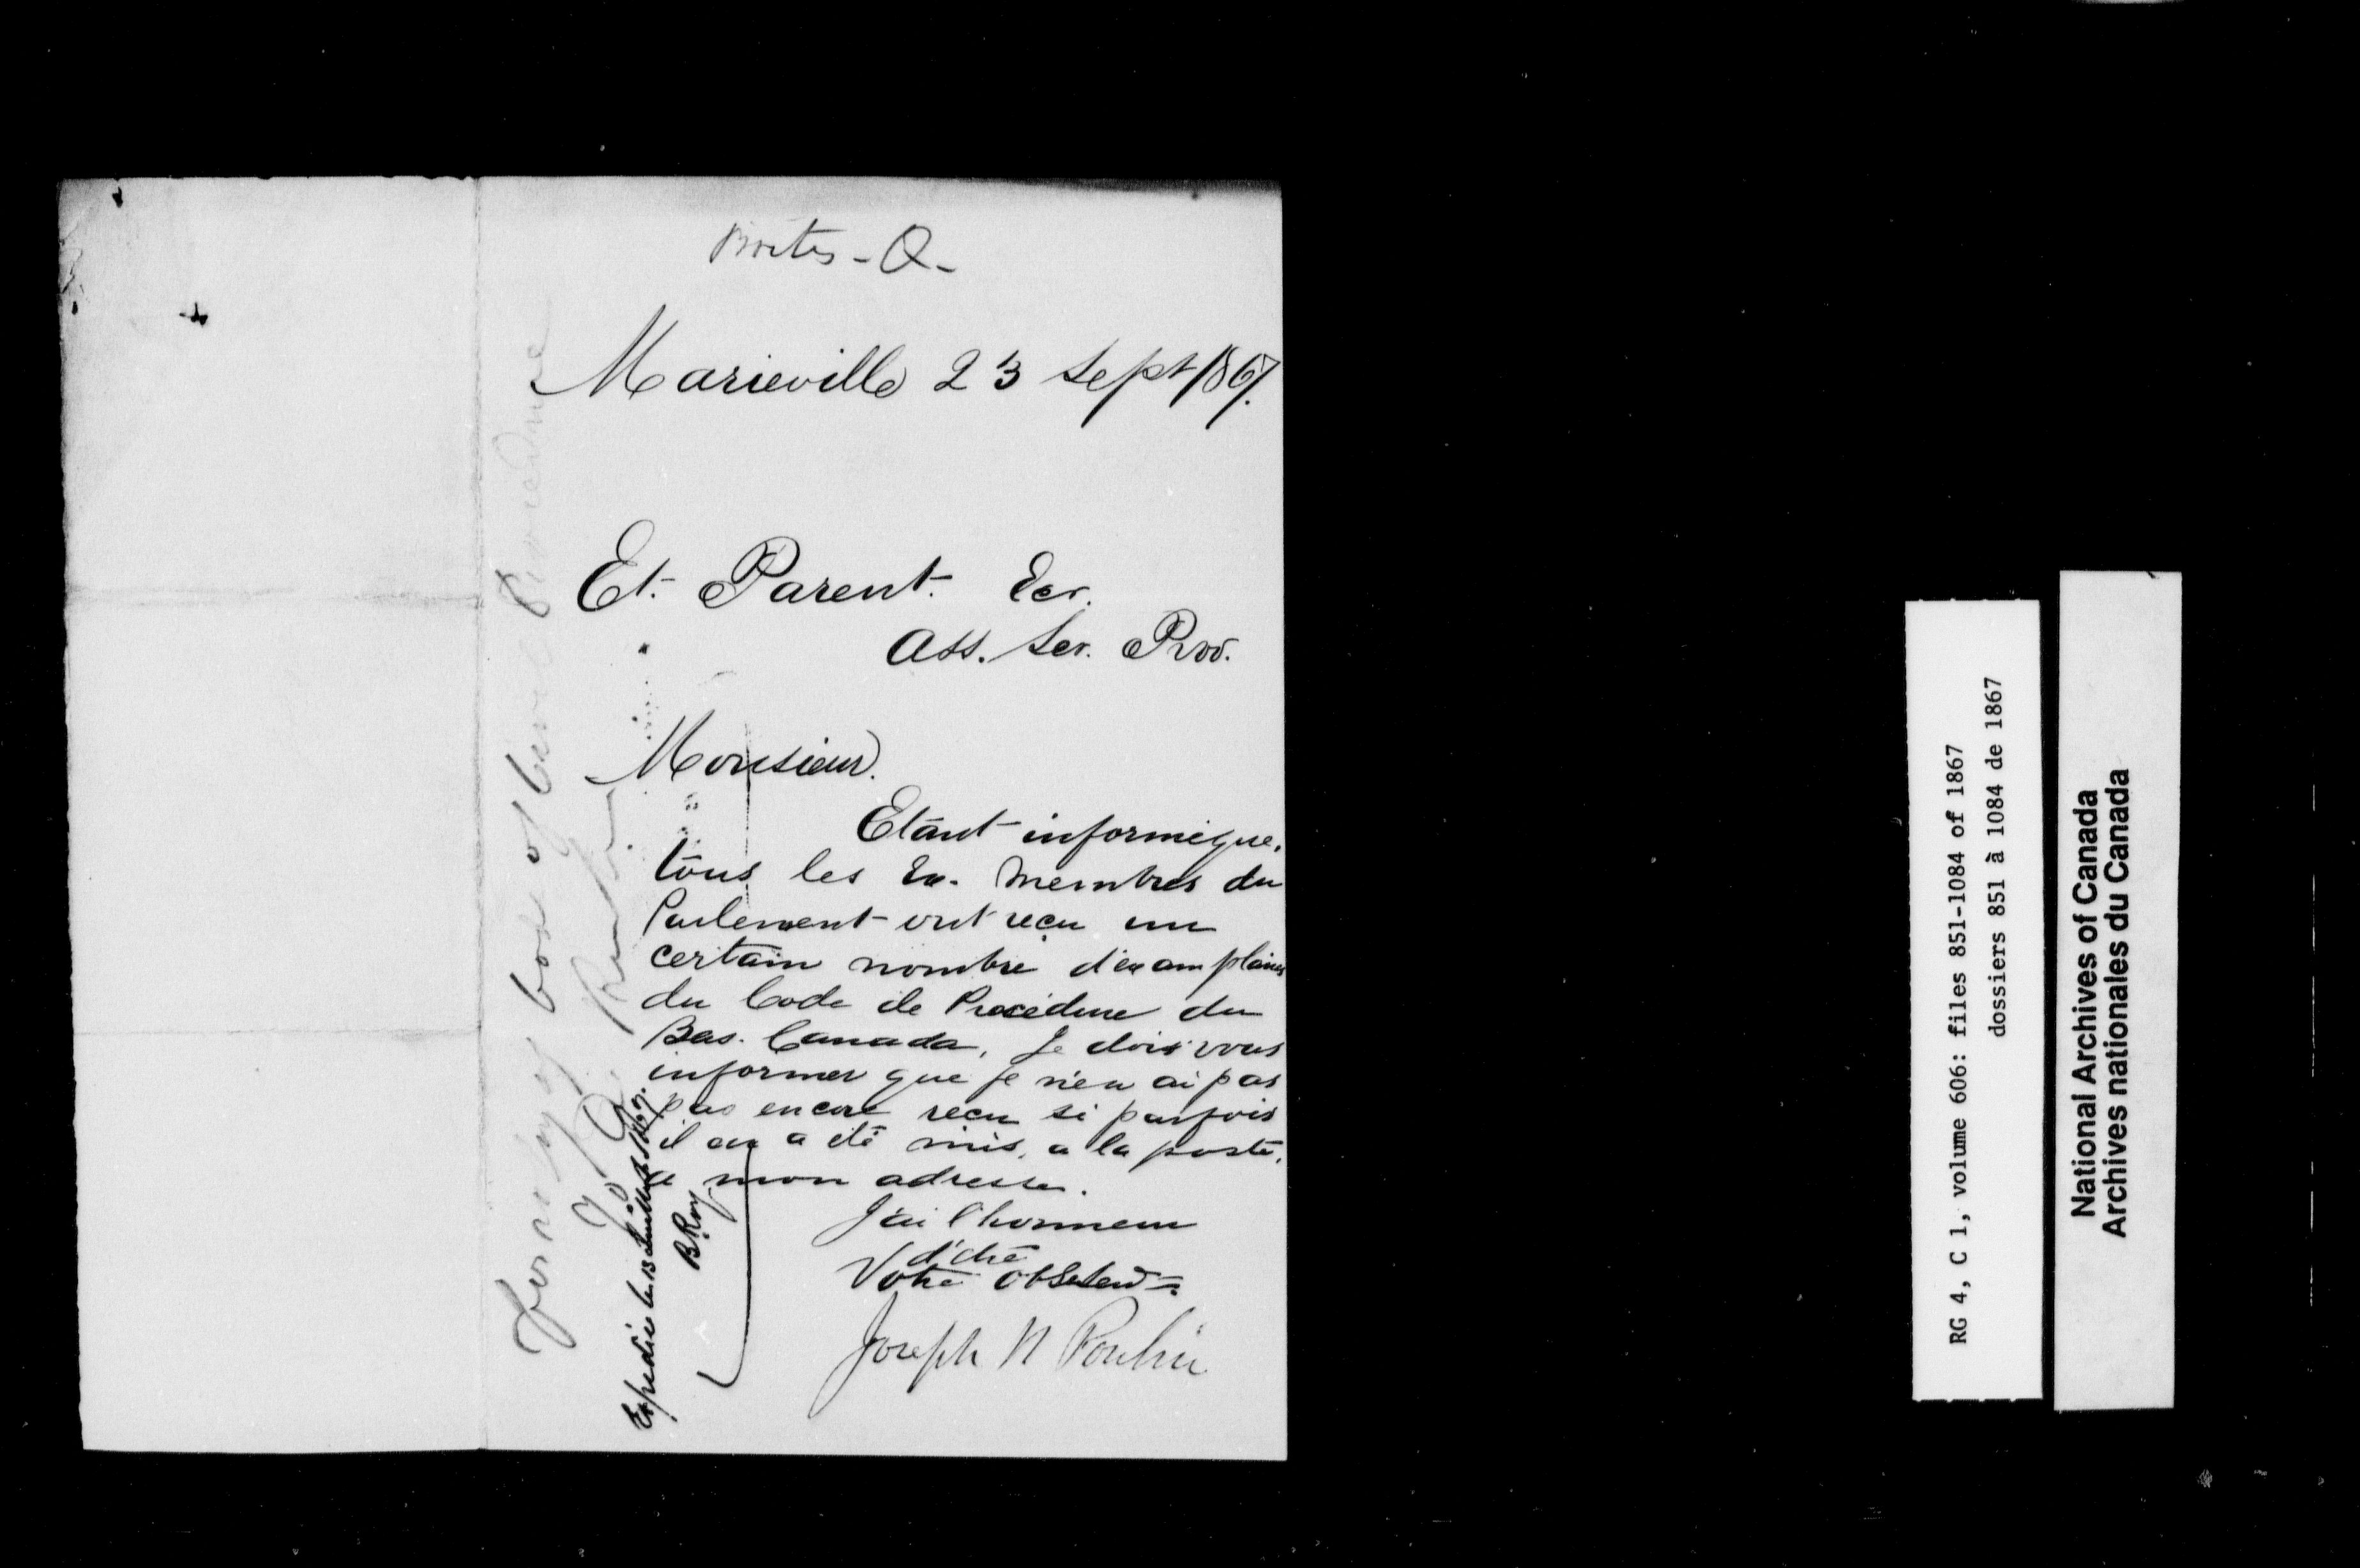 Marieville 23 Sept 1867.
Et. Parent. Ecr.
Ass. Sec. Prov.
Monsieur.
Etant informé que,
tous les Ex. Membres du
Parlement ont reçu un
certain nombre d'examplaires
du Code de Procédure du
Bas. Canada, Je dois vous
informer que je n'en ai pas
pas encore reçu si parfois
il en a été mis, a la poste,
a mon adresse.
J'ai l'honneur
d'être
Votre Obt
Joseph N Poulin
Expedié le 13 1867.
B. Roy
Code of Civil Procedure
RG 4, C 1, volume 606: files 851-1084 of 1867
dossiers 851 à 1084 de 1867
National Archives of Canada
Archives nationales du Canada